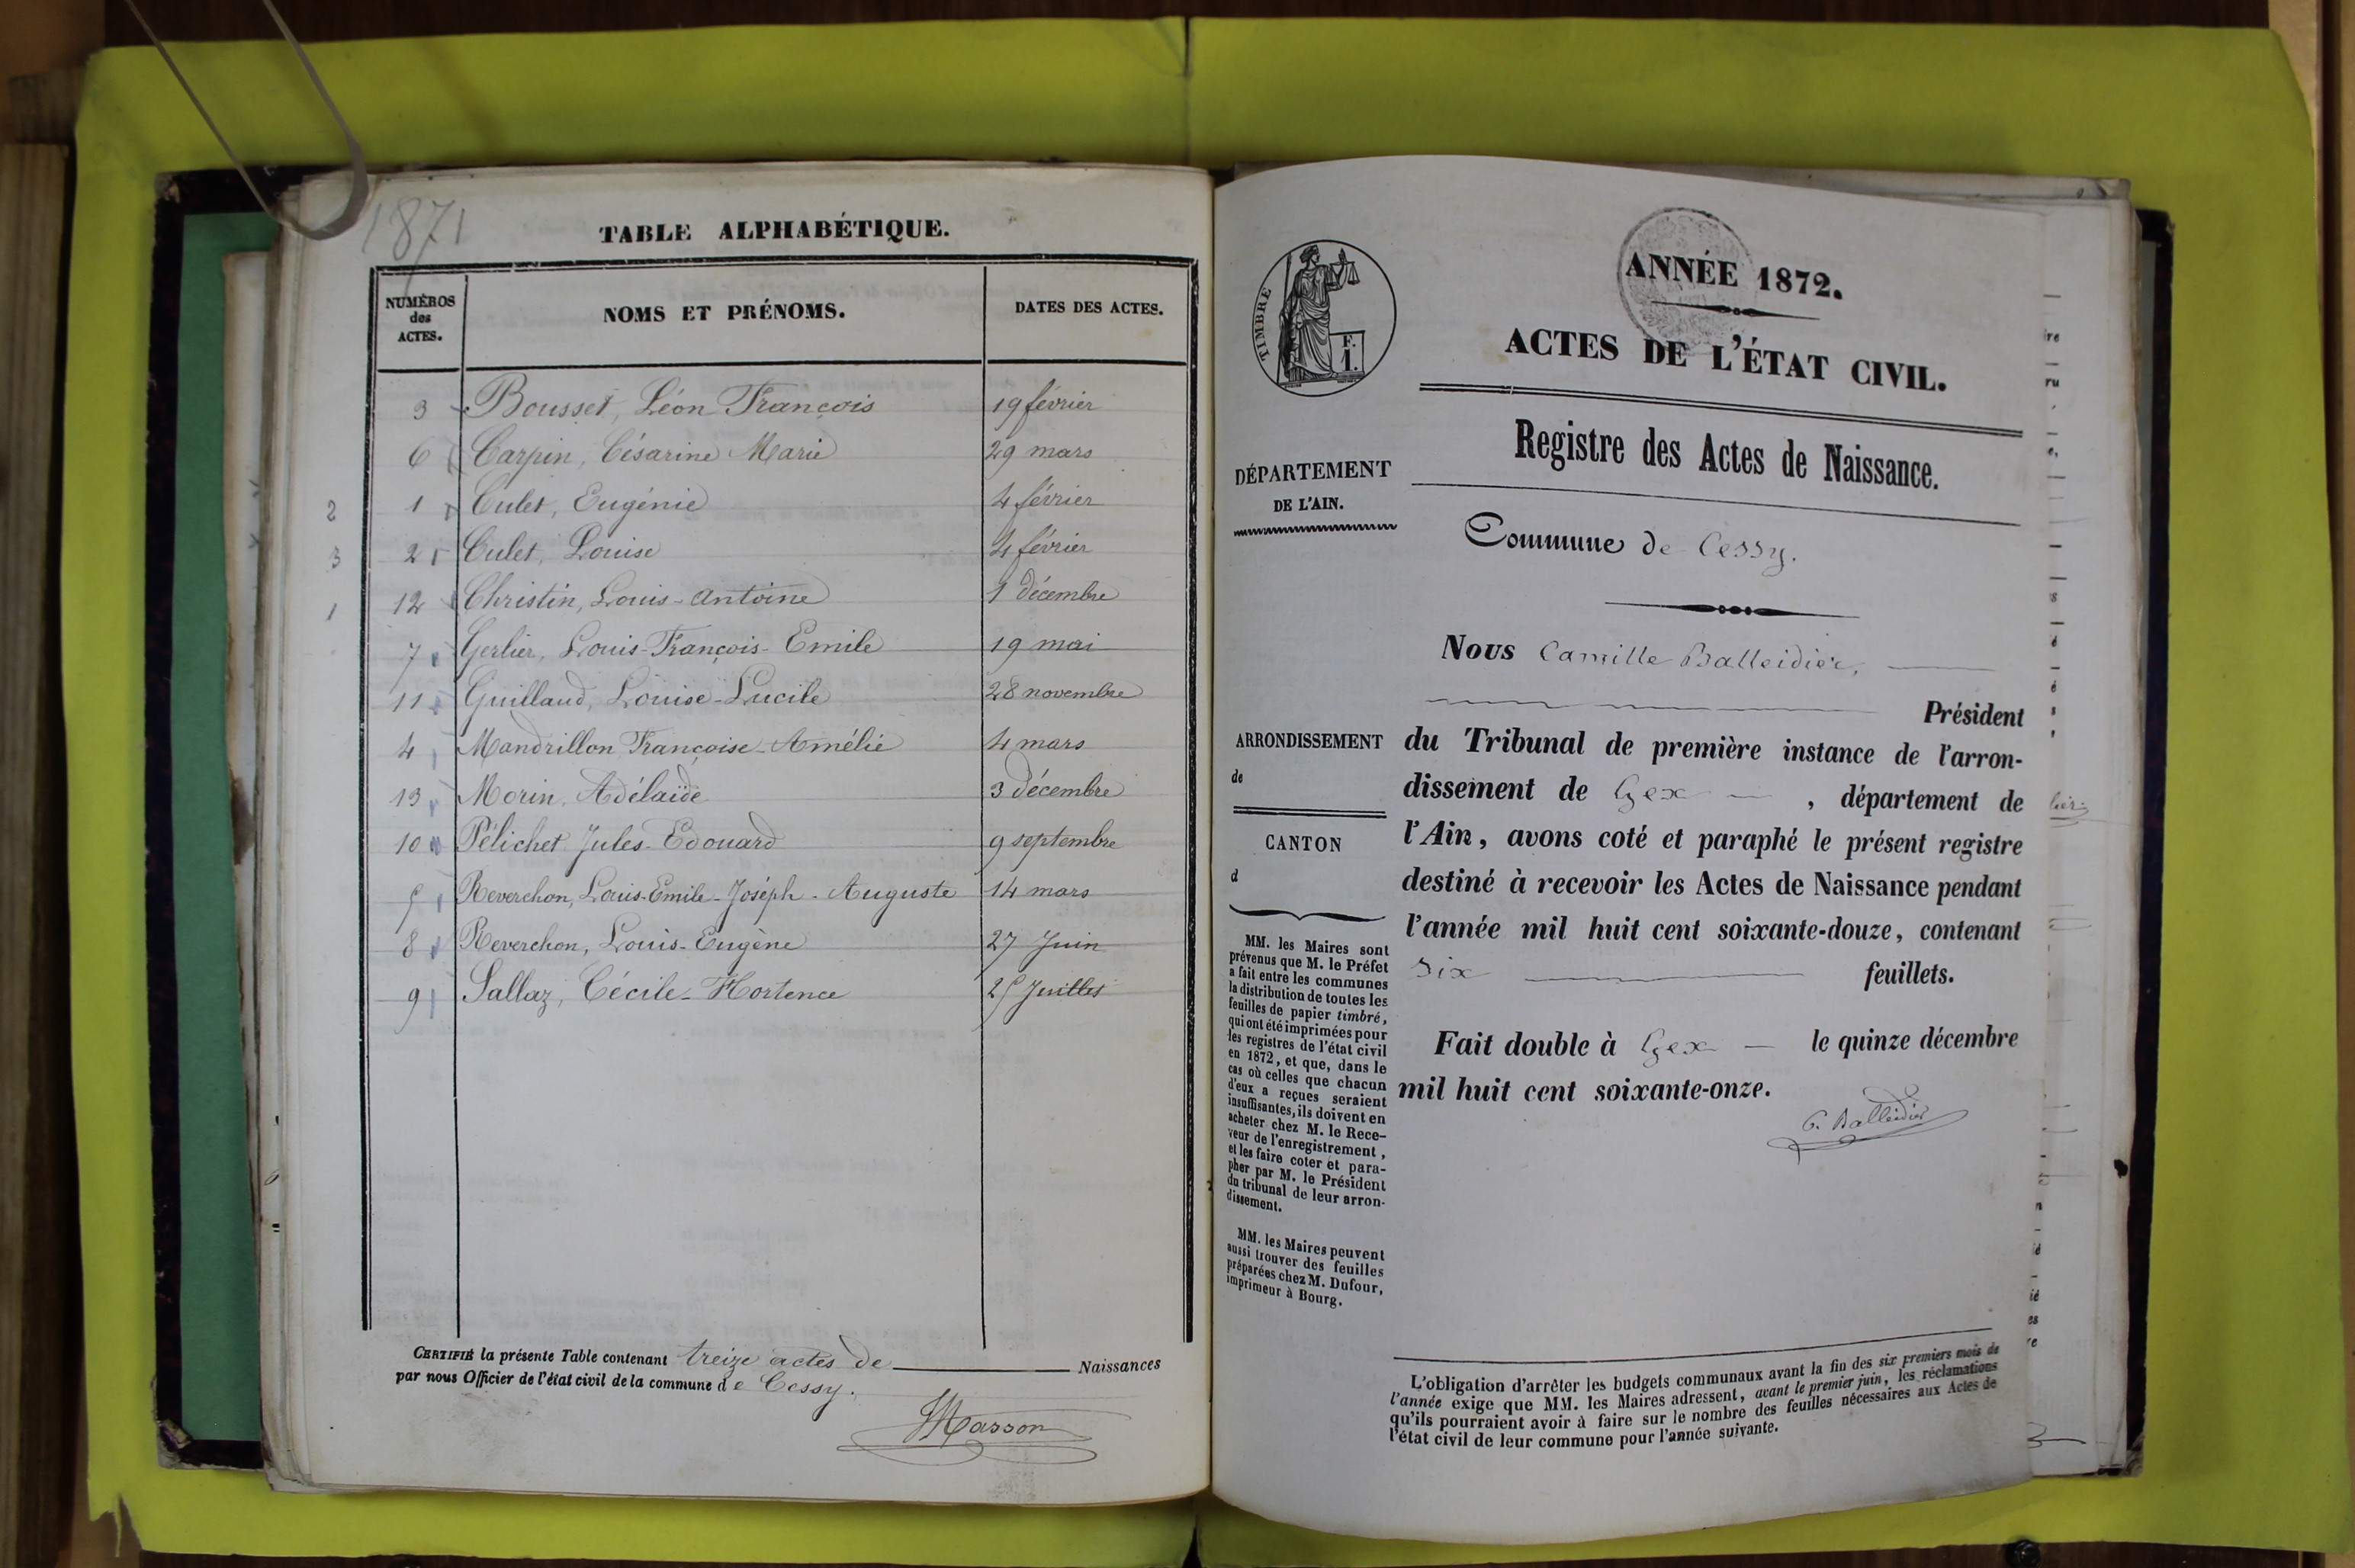 1871
TABLE ALPHABÉTIQUE.
NUMÉROS des ACTES. NOMS ET PRÉNOMS. DATES DES ACTES.
3 Bousset, Léon François 19 février
6 Carpin, Césarine Marie 29 mars
2 1 Culet, Eugénie 4 février
3 2 Culet, Louise 4 février
1 12 Christin, Louis-Antoine 1 décembre
7 Gerlier, Louis-François-Emile 19 mai
11 Guillaud, Louise-Lucile 28 novembre
4 Mandrillon Françoise-Amélie 4 mars
13 Morin, Adélaïde 3 décembre
10 Pélichet Jules-Edouard 9 septembre
5 Reverchon, Louis-Emile-Joséph-Auguste 14 mars
8 Reverchon, Louis-Eugène 27 Juin
9 Sallaz, Cécile-Hortence 25 Juillet
CERTIFIÉ la présente Table contenant treize actes de Naissances
par nous Officier de l'état civil de la commune de Cessy.
Masson
TIMBRE
F.
I.
ANNÉE 1872.
ACTES DE L'ÉTAT CIVIL.
Registre des Actes de Naissance.
DÉPARTEMENT
DE L'AIN.
Commune de Cessy.
Nous Camille Balleidier,
Président
ARRONDISSEMENT
de
CANTON
d
du Tribunal de première instance de l'arron-
dissement de Gex, département de
l'Ain, avons coté et paraphé le présent registre
destiné à recevoir les Actes de Naissance pendant
l'année mil huit cent soixante-douze, contenant
six feuillets.
Fait double à Gex le quinze décembre
mil huit cent soixante-onze.
C. Balleidier
MM. les Maires sont
prévenus que M. le Préfet
a fait entre les communes
la distribution de toutes les
feuilles de papier timbré,
qui ont été imprimées pour
les registres de l'état civil
en 1872, et que, dans le
cas où celles que chacun
d'eux a reçues seraient
insuffisantes, ils doivent en
acheter chez M. le Rece-
veur de l'enregistrement,
et les faire coter et para-
pher par M. le Président
du tribunal de leur arron-
dissement.
MM. les Maires peuvent
aussi trouver des feuilles
préparées chez M. Dufour,
imprimeur à Bourg.
L'obligation d'arrêter les budgets communaux avant la fin des six premiers mois de
l'année exige que MM. les Maires adressent, avant le premier juin, les réclamations
qu'ils pourraient avoir à faire sur le nombre des feuilles nécessaires aux Actes de
l'état civil de leur commune pour l'année suivante.